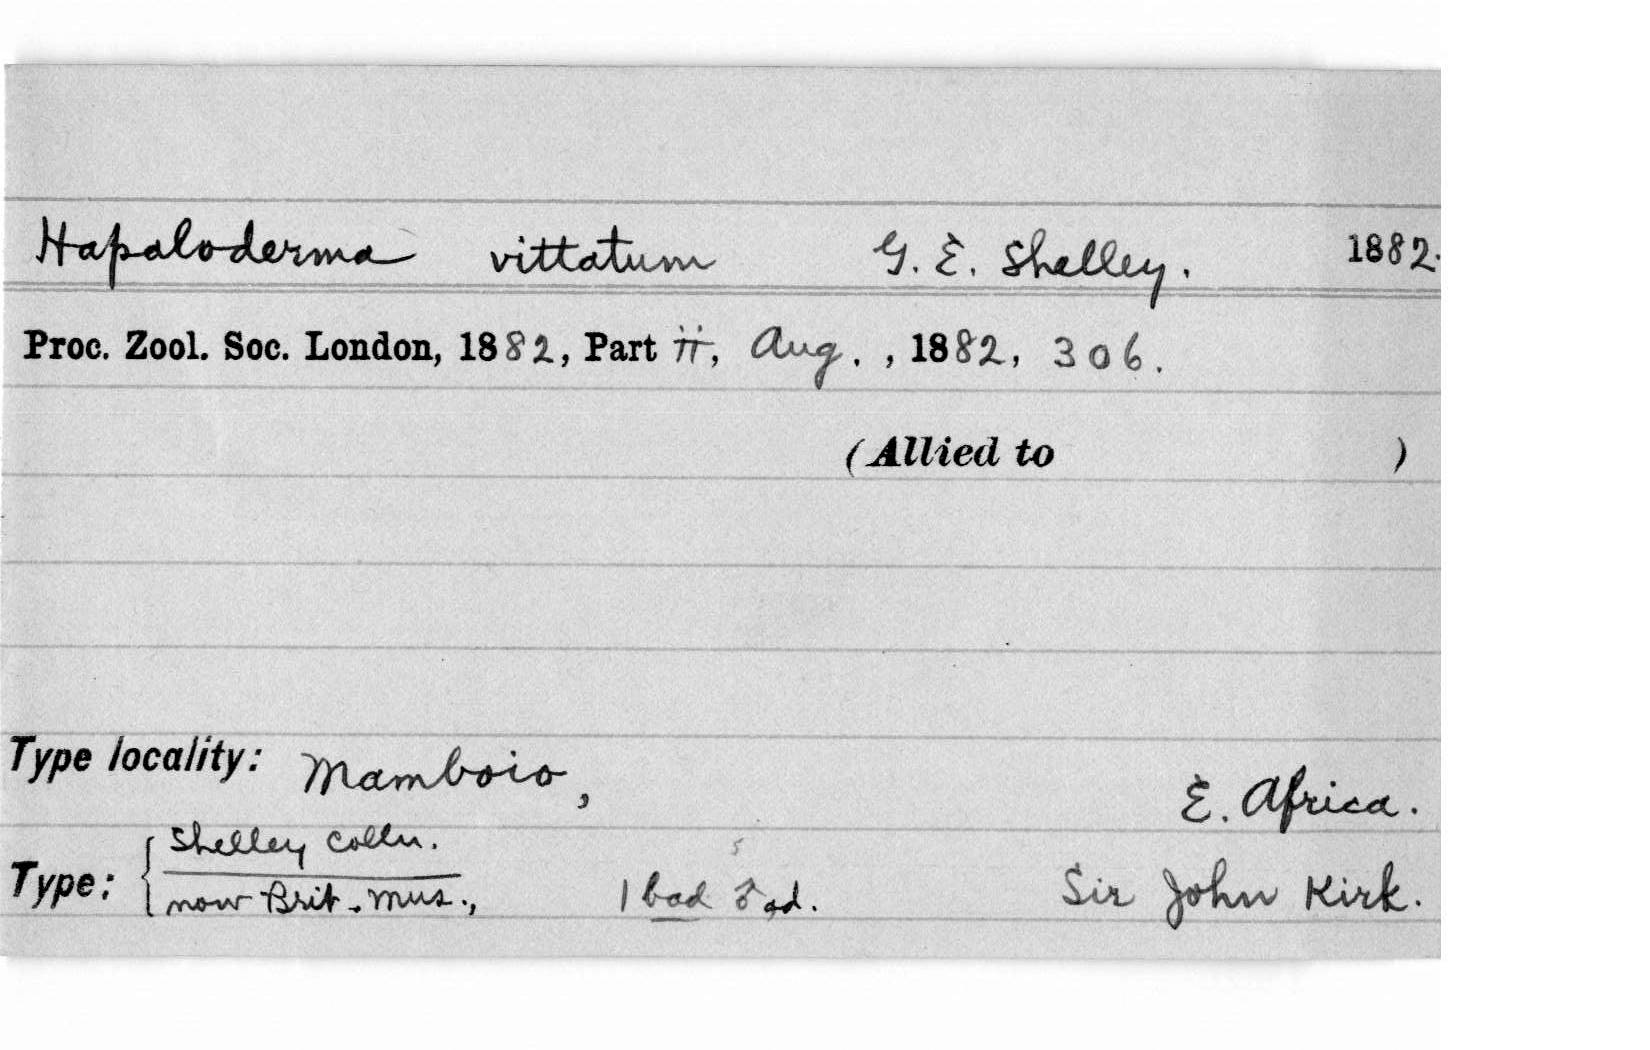 Hapaloderma vittatum G. E. Shelley. 1882.
Proc. Zool. Soc. London, 1882, Part ii, Aug., 1882, 306.
(Allied to )
Type locality: Mamboio, E. Africa.
Shelley Colln.
Type: { now Brit. Mus., 1 bad ♂ ad. Sir John Kirk.